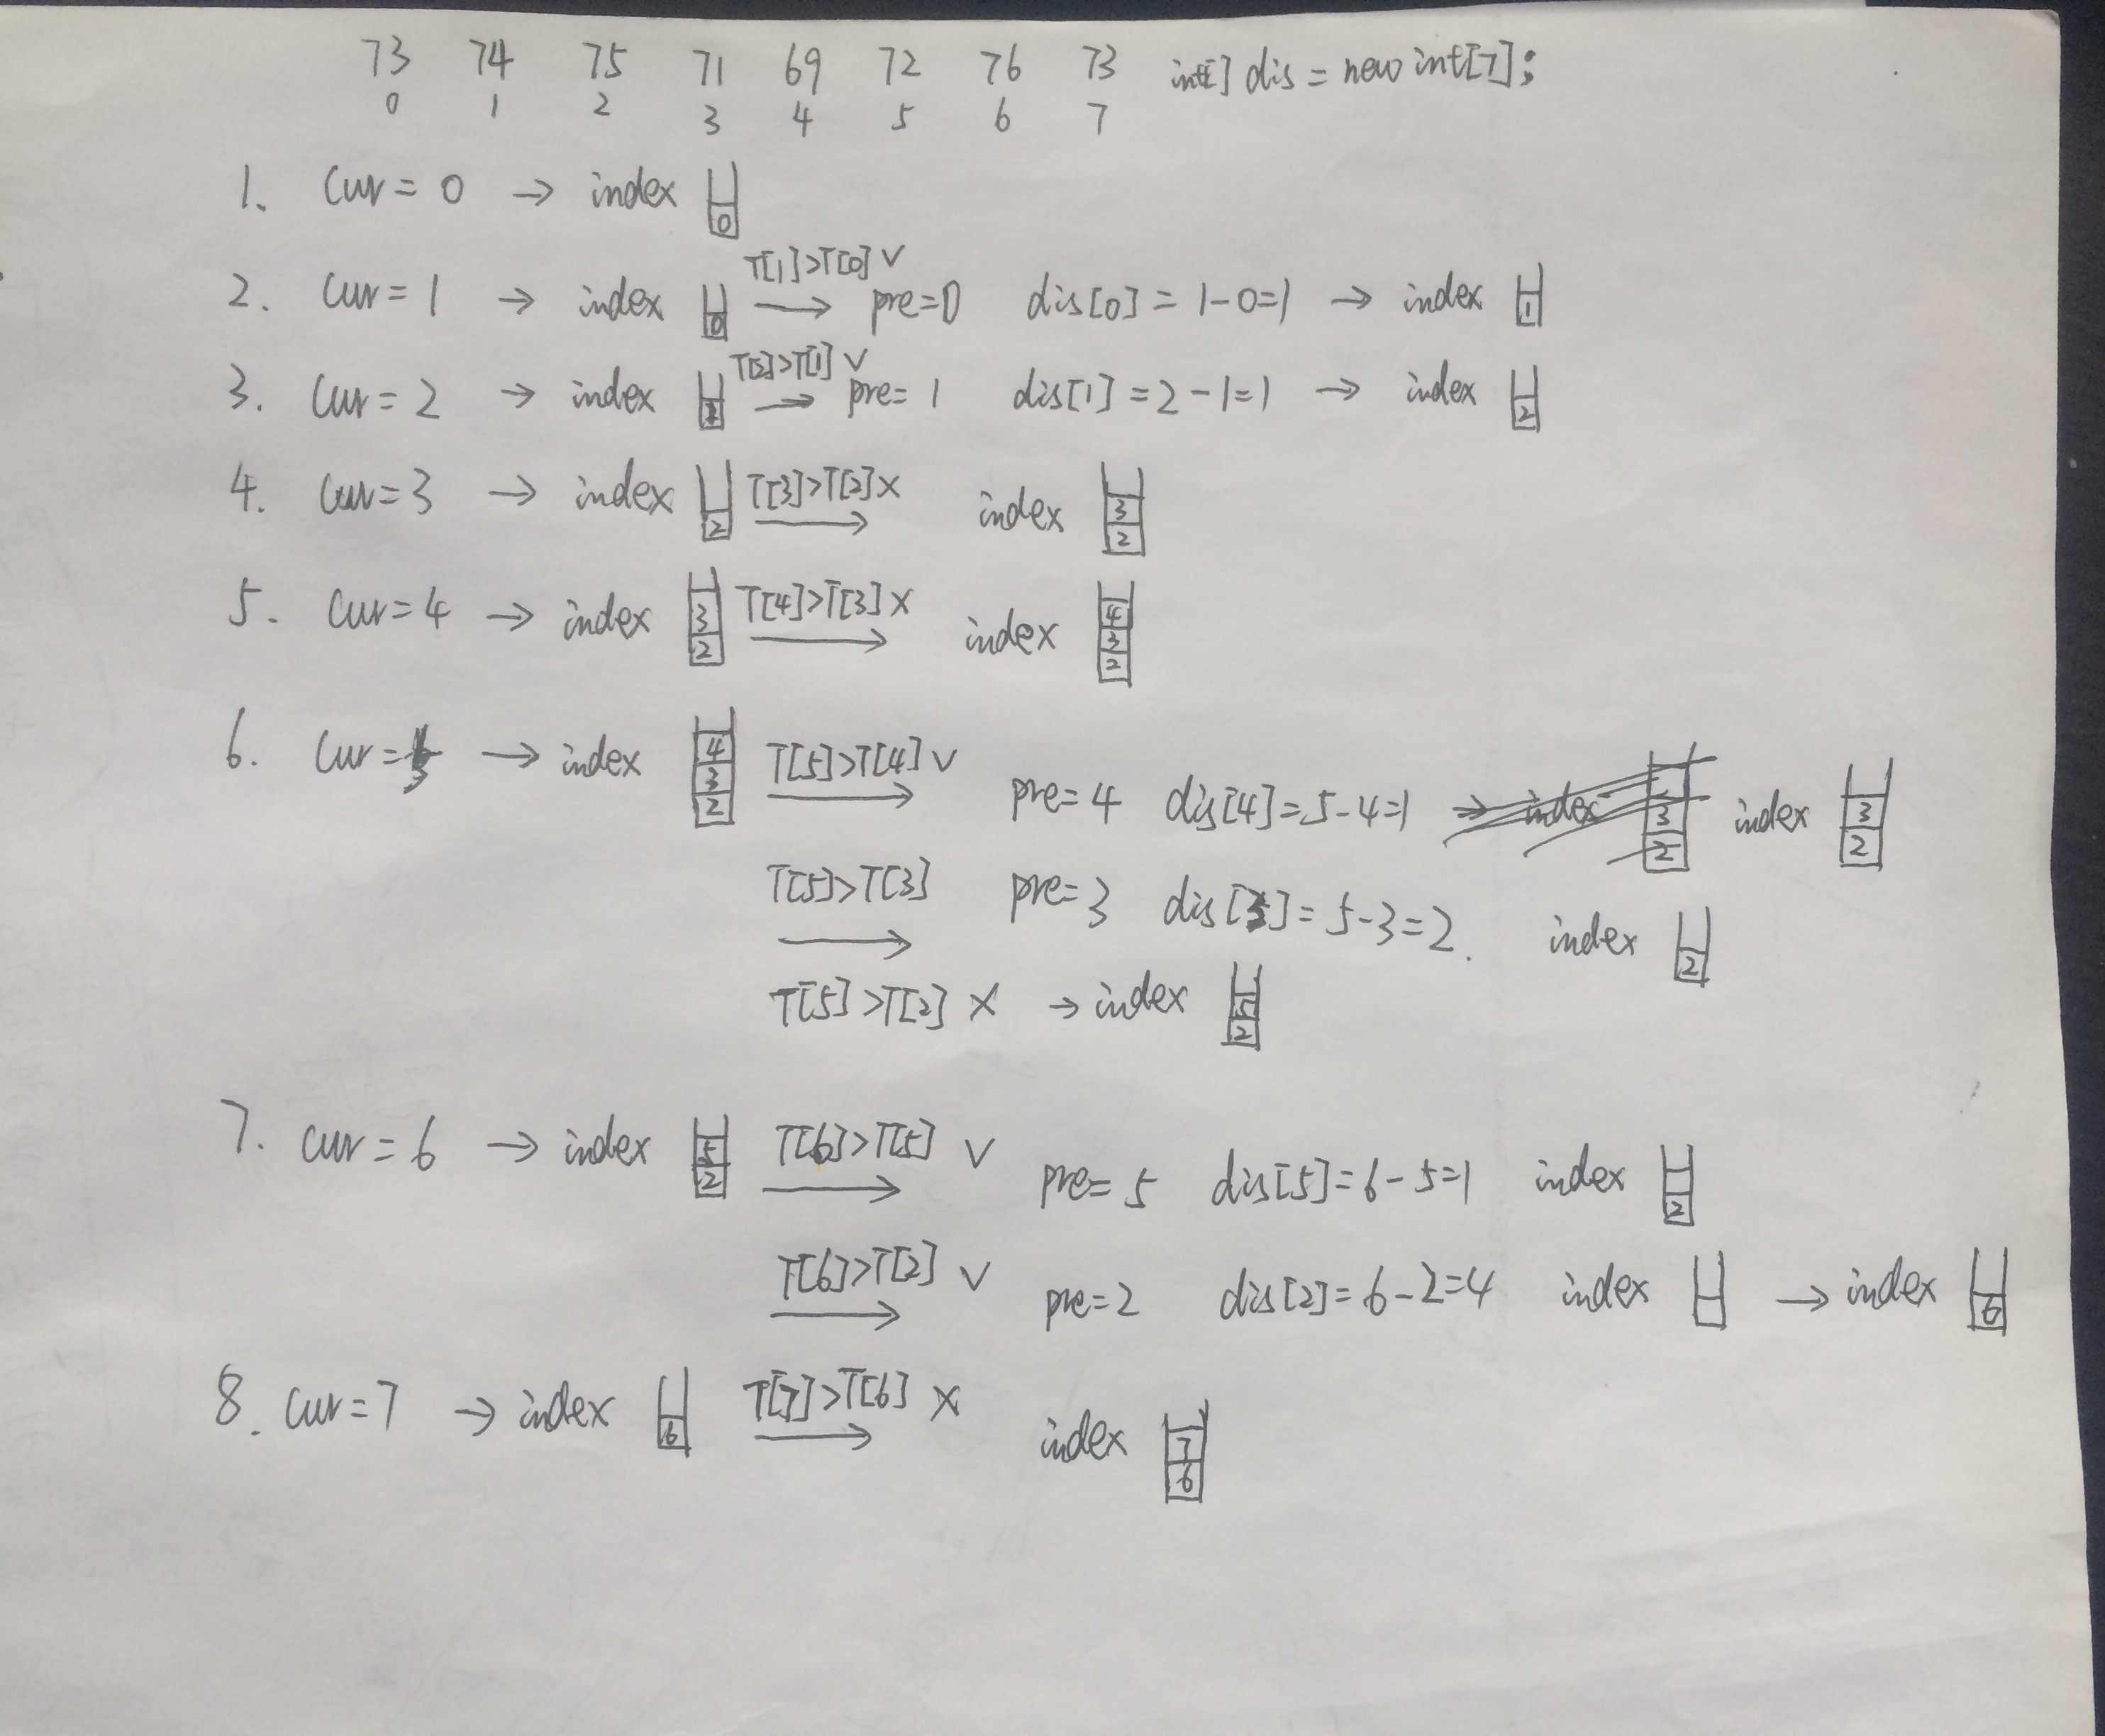 73 74 75 71 69 72 76 73 int[] dis = new int[7];
0 1 2 3 4 5 6 7
1. Cur = 0 → index 0
T[1]>T[0] ∨
2. Cur = 1 → index 0 → pre=0 dis[0] = 1-0=1 → index 1
T[2]>T[1] ∨
3. Cur = 2 → index 1 → pre= 1 dis[1] = 2-1=1 → index 2
4. Cur=3 → index 2 T[3]>T[2] × → index 3 2
5. Cur=4 → index 3 2 T[4]>T[3] × → index 4 3 2
6. Cur=5 → index 4 3 2 T[5]>T[4] ∨ → pre=4 dis[4]=5-4=1 → index 3 2 index 3 2
T[5]>T[3] → pre=3 dis[3]=5-3=2. index 2
T[5]>T[2] × → index 5 2
7. cur=6 → index 5 2 T[6]>T[5] ∨ → pre=5 dis[5]=6-5=1 index 2
T[6]>T[2] ∨ → pre=2 dis[2]=6-2=4 index → index 6
8. Cur=7 → index 6 T[7]>T[6] × → index 7 6